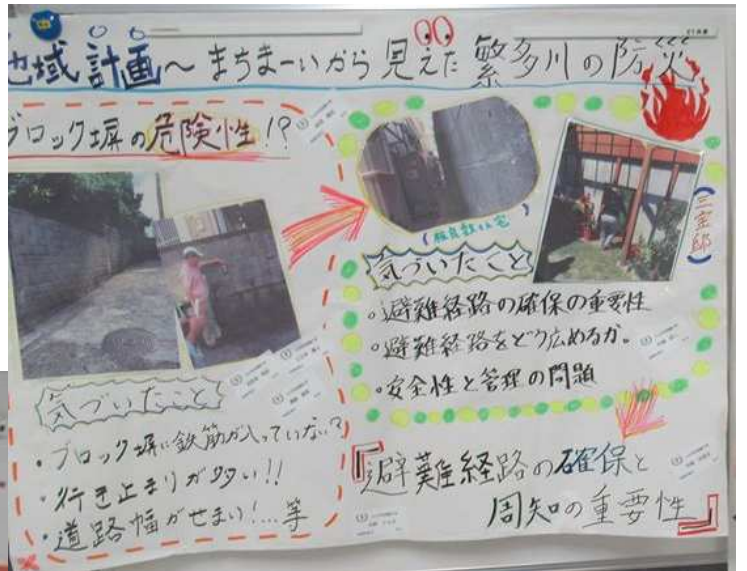 地域計画～まちまーいから見えた繁多川の防災
ブロック塀の危険性!?
気づいたこと
・ブロック塀に鉄筋が入っていない?
・行き止まりが多い!!
・道路幅がせまい!...等
(三宝邸)
気づいたこと
・避難経路の確保の重要性
・避難経路をどう広めるか。
・安全性と管理の問題
『避難経路の確保と
周知の重要性』